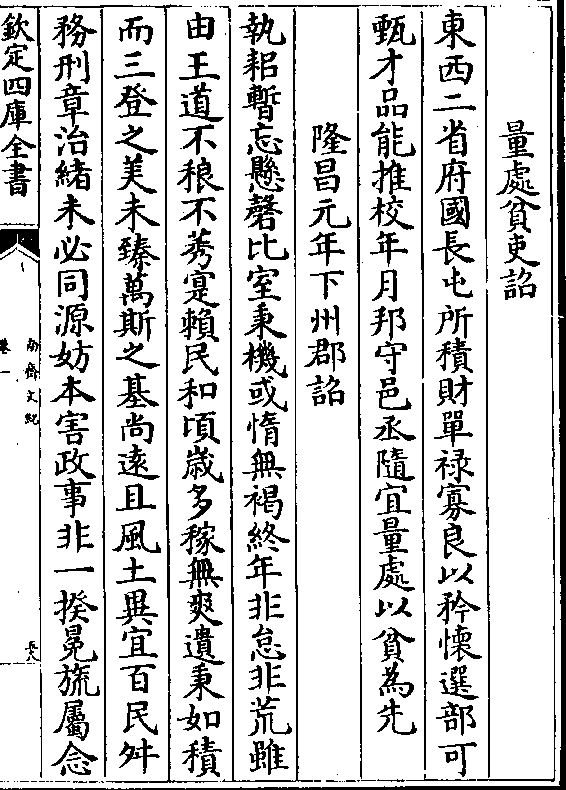 量處貧吏詔
東西二省府國長屯所積財單祿寡良以矜懷選部可
甄才品能推校年月邦守邑丞隨宜量處以貧為先
隆昌元年下州郡詔
執耜暫忘懸磬比室秉機或惰無褐終年非怠非荒雖
由王道不稂不莠寔賴民和頃歳多稼無爽遺秉如積
而三登之美未臻萬斯之基尚遠且風土異宜百民舛
務刑章治緒未必同源妨本害政事非一揆冕旒屬念
欽定四庫全書
南齊文紀
卷一